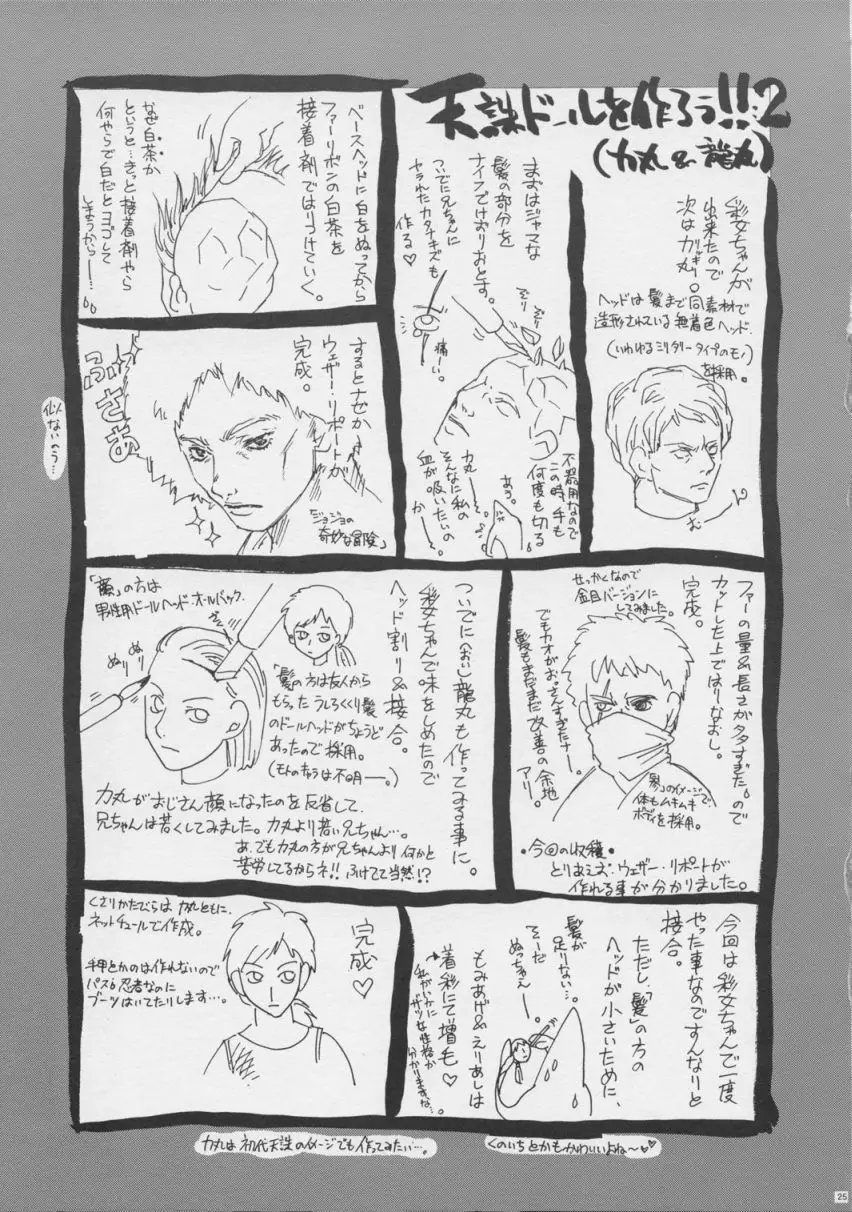 天誅ドールを作ろう!!2
(力丸&龍丸)
彩女ちゃんが
出来たので
次は力丸。
ヘッドは髪まで同素材で
造形されている無着色ヘッド.
(いわゆるミリタリータイプのモノ)
を採用。
まずはジャマな
髪の部分を
ナイフでけずりおとす。
ついでに兄ちゃんに
ヤラれたカタナキズも
作る♡
痛ーい。
不器用なので
この時、手も
何度も切る
あう。
力丸ー。
そんなに私の
血が吸いたいの
かーー。
ベースヘッドに白をぬってから
ファーリボンの白茶を
接着剤ではりつけていく。
なぜ白茶か
というと…きっと接着剤やら
何やらで白だとヨゴして
しまうからー…。
するとナゼか
ウェザー・リポートが
完成。
ふさぁ
「ジョジョの
奇妙な冒険」
似ないのう…
ファーの量&長さが多すぎた。ので
カットした上ではりなおし。
完成。
せっかくなので
金目バージョンに
してみました。
でもカオがおじさんすぎたナー。
髪もまだまだ改善の余地
アリ。
「参」のイメージで
体もムキムキ
ボディを採用。
•今回の収穫•
とりあえズ、ウェザー・リポートが
作れる事が分かりました。
ついでに(おい)龍丸も作ってみる事に。
彩女ちゃんで味をしめたので
ヘッド割り&接合。
男性用ドールヘッド・オールバック.
ぬり
ぬり
「髪」の方は友人から
もらったうしろくくり髪
のドールヘッドがちょうど
あったので採用。
(モトのキャラは不明ー。)
力丸がおじさん顔になったのを反省して、
兄ちゃんは若くしてみました。力丸より若い兄ちゃん…。
あ、でも力丸の方が兄ちゃんより何かと
苦労してるからネ!!ふけてて当然!?
今回は彩女ちゃんで一度
やった事なのですんなりと
接合。
ただし、「髪」の方の
ヘッドが小さいために、
髪が
足りない…。
そーだ
ぬっちゃえー。
もみあげ&えりあしは
着彩にて増毛♡
私がいかに
ザツな性格か
分かりますな…。
完成♡
くさりかたびらは力丸ともに、
ネットチュールで作成。
手甲とかのは作れないので
パス。忍者なのに
ブーツはいてたりします…。
力丸は初代天誅のイメージでも作ってみたい…。
くのいちとかもかわいいよね〜♡
25